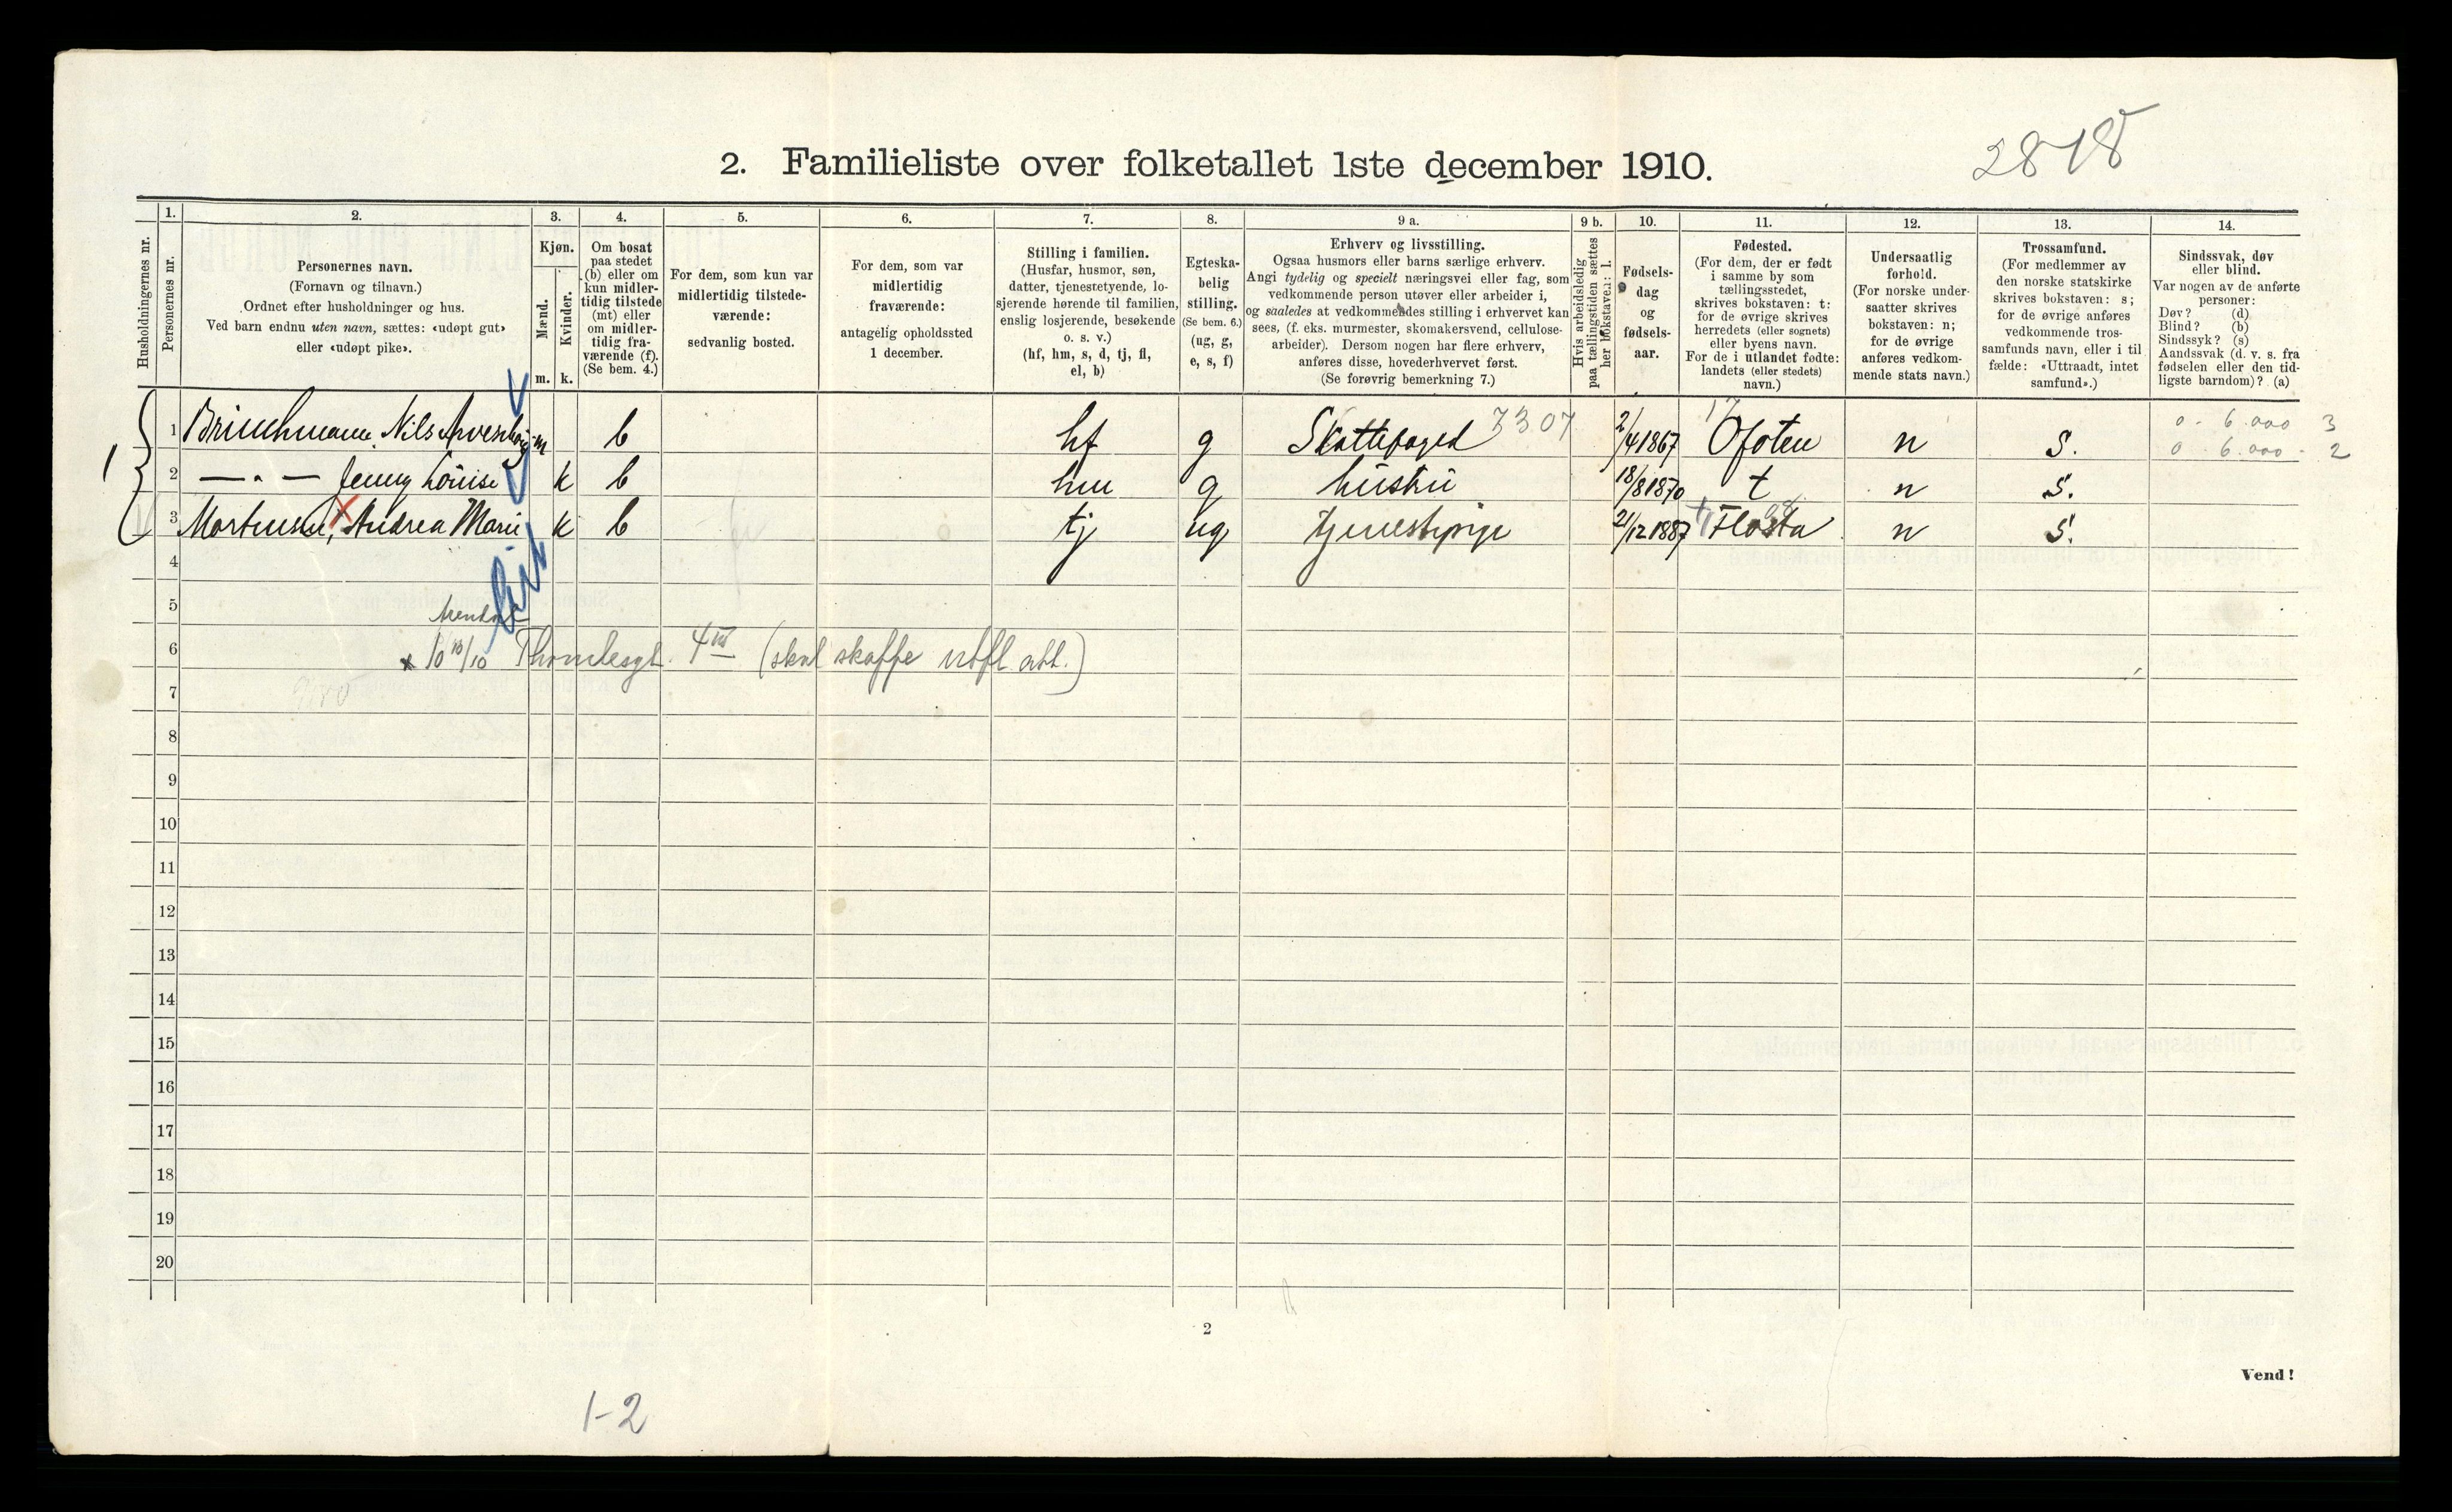 2818
2. Familieliste over folketallet 1ste december 1910.
Husholdningernes nr.
1.
Personernes nr.
2.
Personernes navn.
(Fornavn og tilnavn.)
Ordnet efter husholdninger og hus.
Ved barn endnu uten navn, sættes: «udøpt gut»
eller «udøpt pike».
3.
Kjøn.
Mænd.
Kvinder.
m. k.
4.
Om bosat
paa stedet
(b) eller om
kun midler-
tidig tilstede
(mt) eller
om midler-
tidig fra-
værende (f).
(Se bem. 4.)
5.
For dem, som kun var
midlertidig tilstede-
værende:
sedvanlig bosted.
6.
For dem, som var
midlertidig
fraværende:
antagelig opholdssted
1 december.
7.
Stilling i familien.
(Husfar, husmor, søn,
datter, tjenestetyende, lo-
sjerende hørende til familien,
enslig losjerende, besøkende
o. s. v.)
(hf, hm, s, d, tj, fl,
el, b)
8.
Egteska-
belig
stilling.
(Se bem. 6.)
(ug, g,
e, s, f)
9 a.
Erhverv og livsstilling.
Ogsaa husmors eller barns særlige erhverv.
Angi tydelig og specielt næringsvei eller fag, som
vedkommende person utøver eller arbeider i,
og saaledes at vedkommendes stilling i erhvervet kan
sees, (f. eks. murmester, skomakersvend, cellulose-
arbeider). Dersom nogen har flere erhverv,
anføres disse, hovederhvervet først.
(Se forøvrig bemerkning 7.)
9 b.
Hvis arbeidsledig
paa tællingstiden sættes
her bokstaven: l.
10.
Fødsels-
dag
og
fødsels-
aar.
11.
Fødested.
(For dem, der er født
i samme by som
tællingsstedet,
skrives bokstaven: t:
for de øvrige skrives
herredets (eller sognets)
eller byens navn.
For de i utlandet fødte:
landets (eller stedets)
navn.)
12.
Undersaatlig
forhold.
(For norske under-
saatter skrives
bokstaven: n;
for de øvrige
anføres vedkom-
mende stats navn.)
13.
Trossamfund.
(For medlemmer av
den norske statskirke
skrives bokstaven: s;
for de øvrige anføres
vedkommende tros-
samfunds navn, eller i til
fælde: «Uttraadt, intet
samfund».)
14.
Sindssvak, døv
eller blind.
Var nogen av de anførte
personer:
Døv? (d)
Blind? (b)
Sindssyk? (s)
Aandssvak (d. v. s. fra
fødselen eller den tid-
ligste barndom)? (a)
1 1 Brinchmann, Nils m b hf g Skattefoged 7307 2/4 1867 17 Ofoten n s. 0 - 6.000 3
0 - 6.000 - 2
2 — " — Jenny Louise k b hm g hustru 18/8 1870 t n s.
3 Mortensen, Andrea Marie k b tj ug tjenestepige 21/12 1887 Flosta n s.
4
5 Arendal
6 x 10 10/10 Thomlesgt. 4 (skal skaffe utfl. att.)
7
8
9
10
11
12
13
14
15
16
17
18
19
20
2
Vend!
1-2